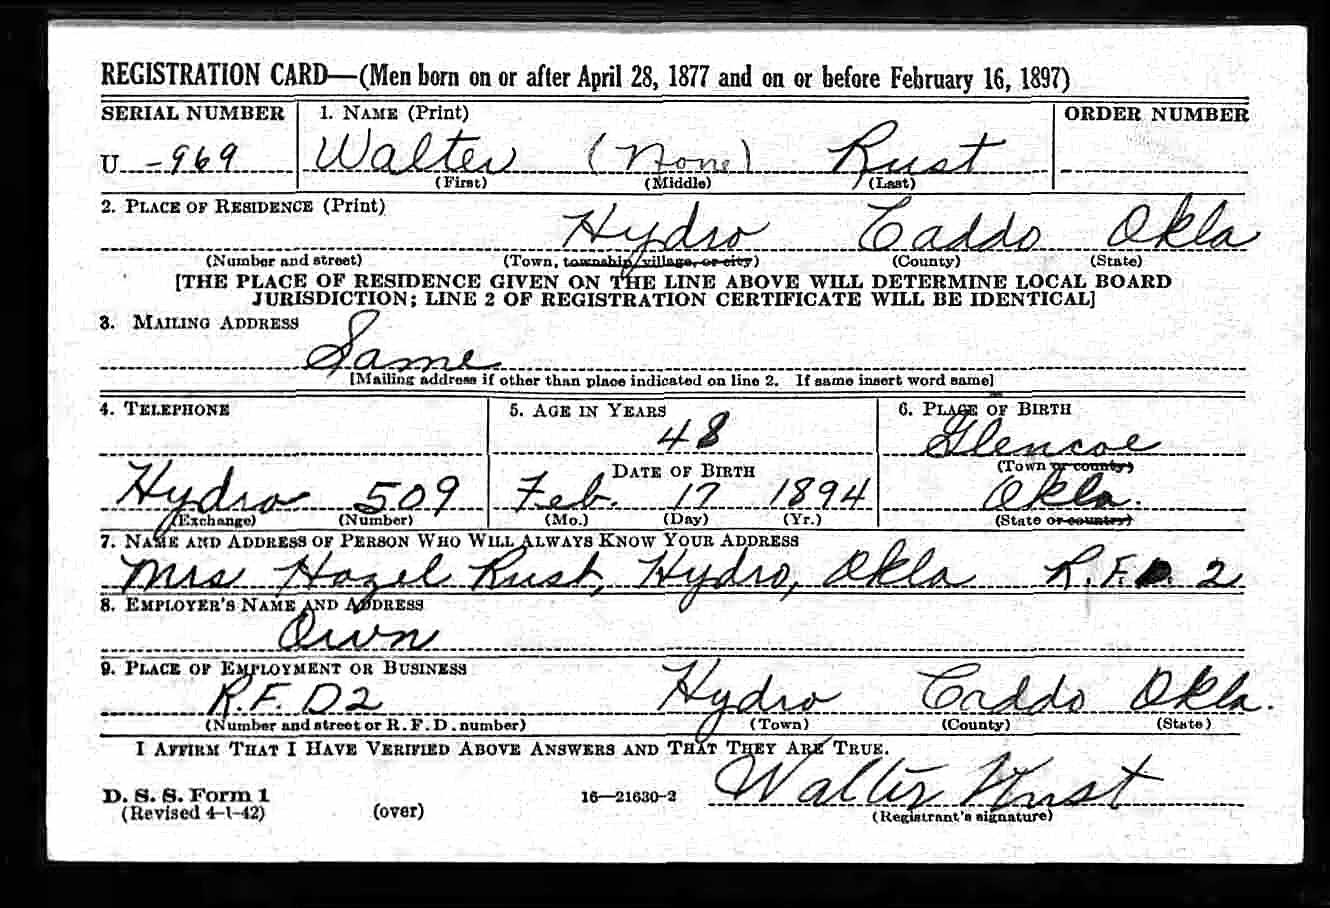 REGISTRATION CARD—(Men born on or after April 28, 1877 and on or before February 16, 1897)
SERIAL NUMBER 1. NAME (Print) ORDER NUMBER
U -969 Walter (None) Rust
(First) (Middle) (Last)
2. PLACE OF RESIDENCE (Print)
Hydro Caddo Okla
(Number and street) (Town, township, village, or city) (County) (State)
[THE PLACE OF RESIDENCE GIVEN ON THE LINE ABOVE WILL DETERMINE LOCAL BOARD
JURISDICTION; LINE 2 OF REGISTRATION CERTIFICATE WILL BE IDENTICAL]
3. MAILING ADDRESS
Same
[Mailing address if other than place indicated on line 2. If same insert word same]
4. TELEPHONE 5. AGE IN YEARS 6. PLACE OF BIRTH
48 Glencoe
DATE OF BIRTH (Town or county)
Hydro 509 Feb. 17 1894 Okla.
(Exchange) (Number) (Mo.) (Day) (Yr.) (State or country)
7. NAME AND ADDRESS OF PERSON WHO WILL ALWAYS KNOW YOUR ADDRESS
Mrs Hazel Rust, Hydro, Okla R.F.D. 2
8. EMPLOYER'S NAME AND ADDRESS
Own
9. PLACE OF EMPLOYMENT OR BUSINESS
R.F.D2 Hydro Caddo Okla.
(Number and street or R. F. D. number) (Town) (County) (State)
I AFFIRM THAT I HAVE VERIFIED ABOVE ANSWERS AND THAT THEY ARE TRUE.
Walter Rust
D. S. S. Form 1 16—21630-2
(Revised 4-1-42) (over) (Registrant's signature)